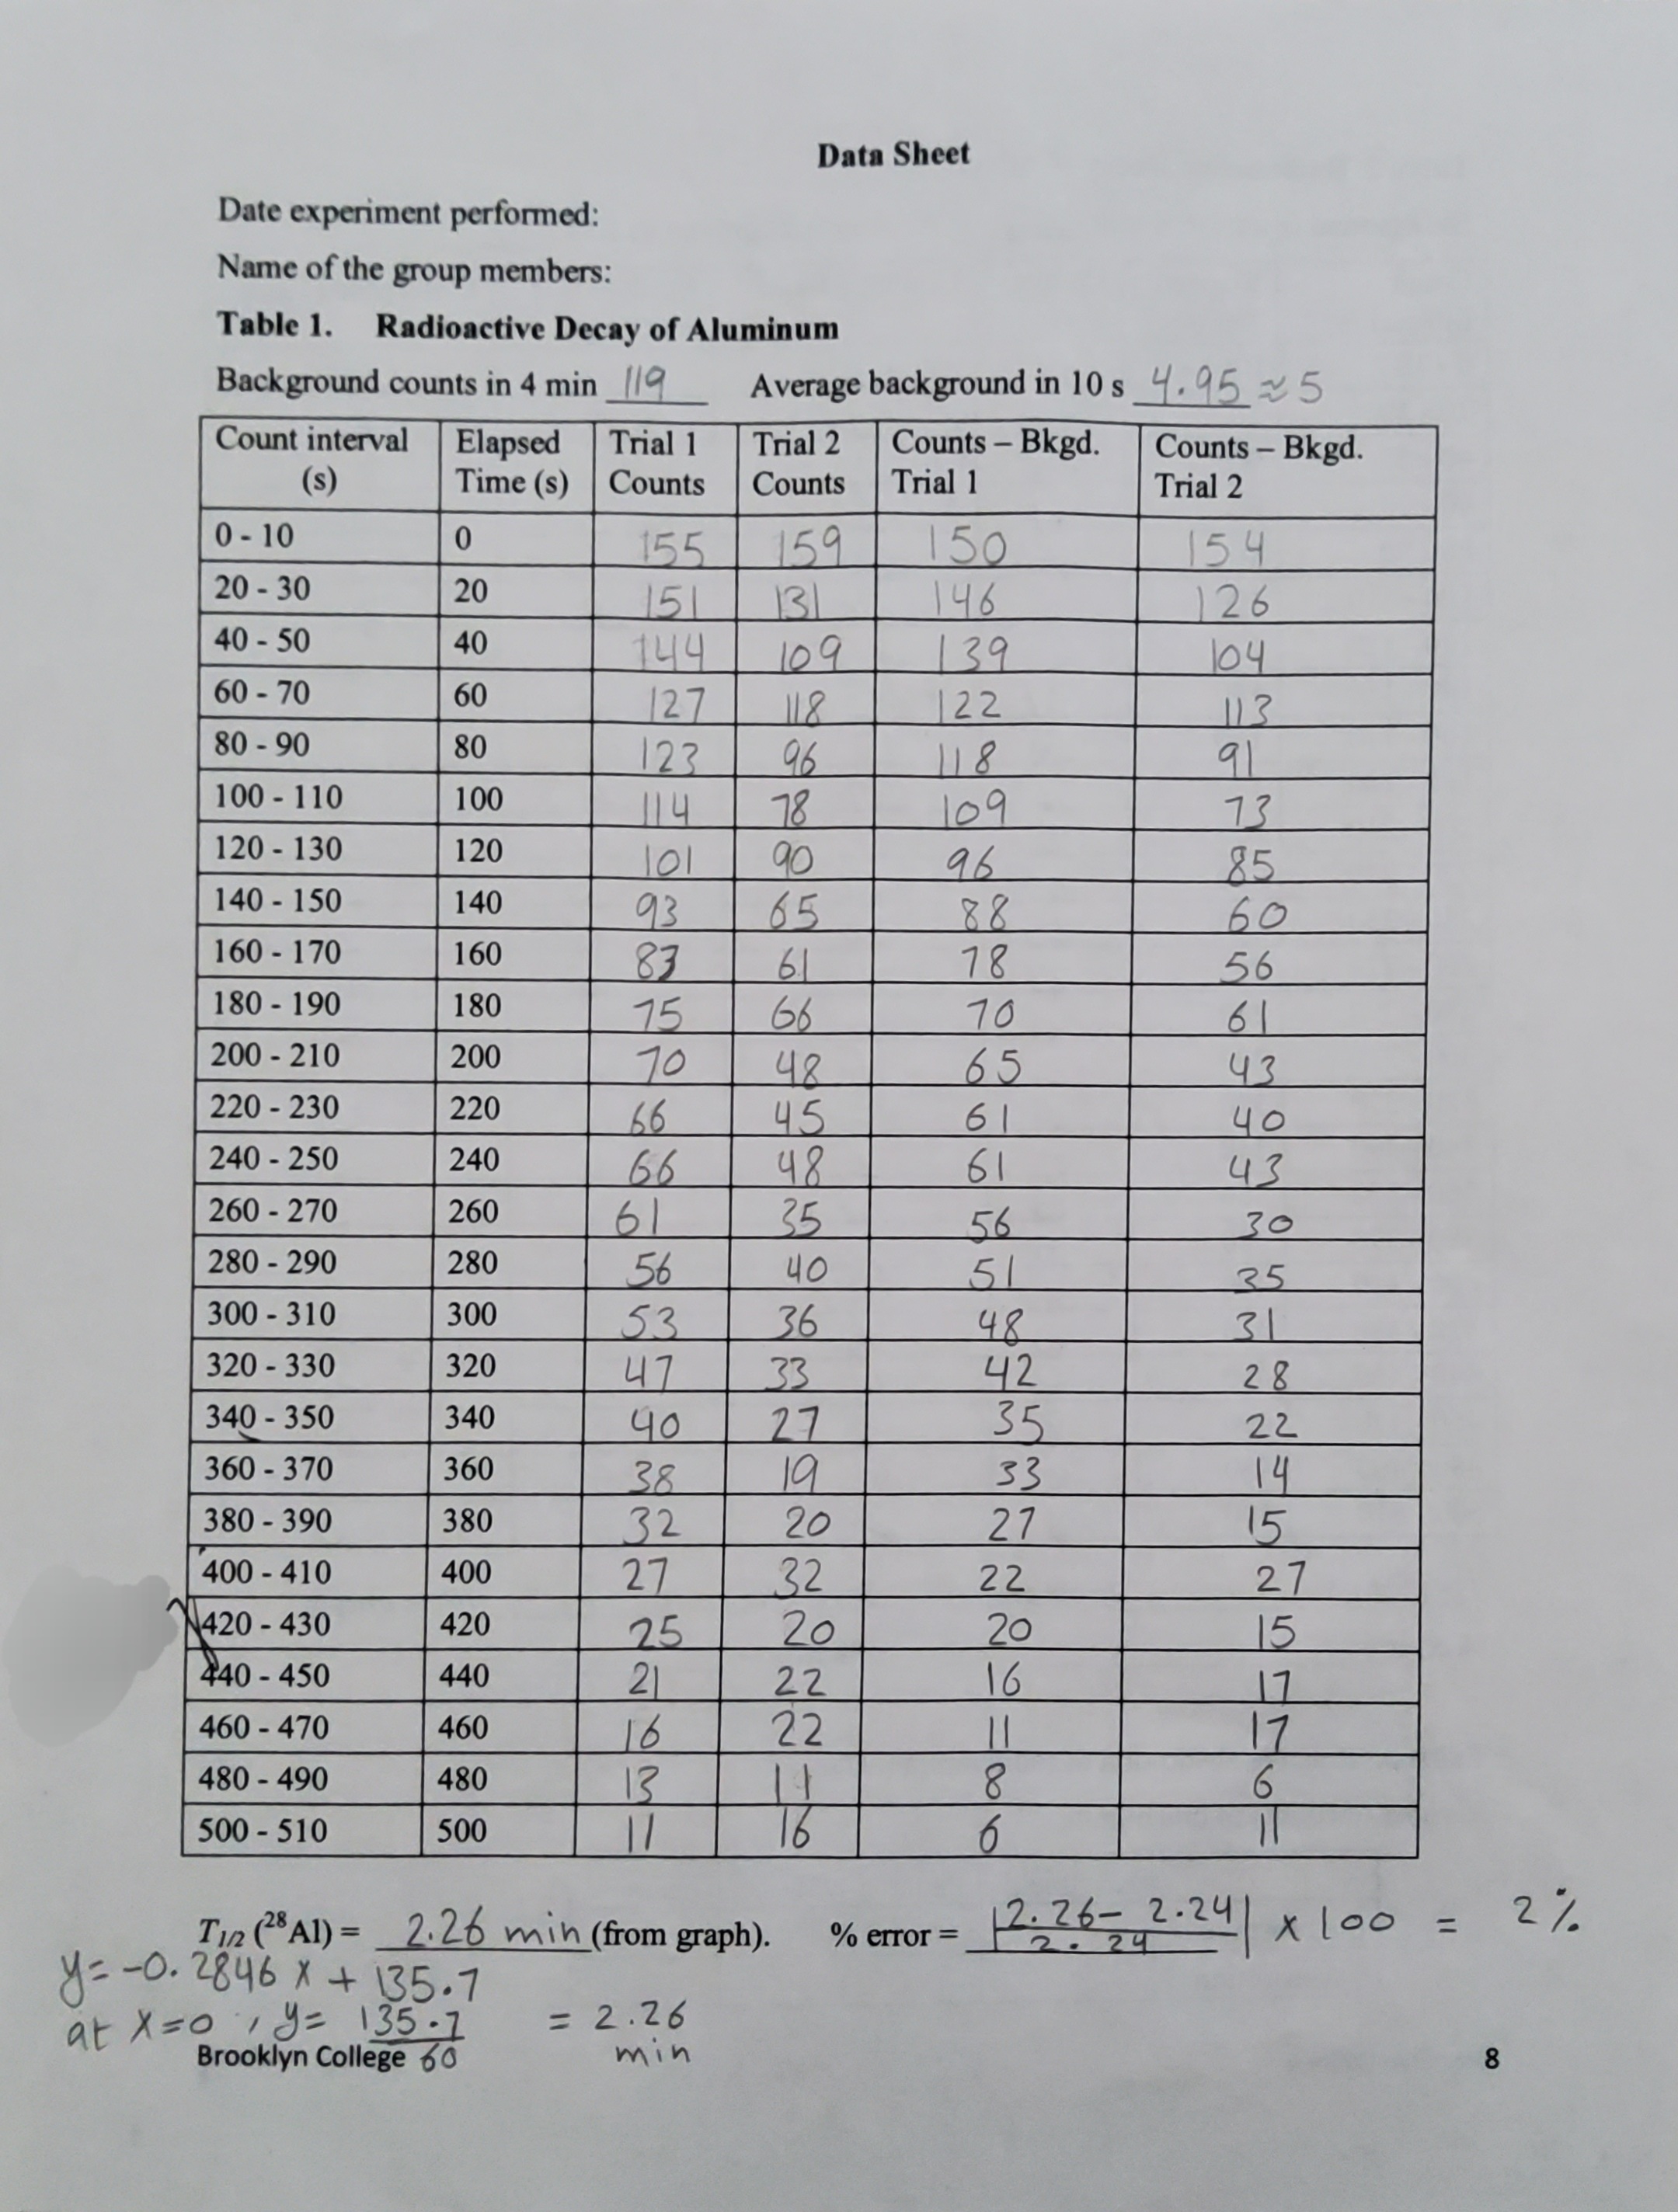 Data Sheet
Date experiment performed:
Name of the group members:
Table 1. Radioactive Decay of Aluminum
Background counts in 4 min 119 Average background in 10 s 4.95 ≈ 5
Count interval (s) Elapsed Time (s) Trial 1 Counts Trial 2 Counts Counts – Bkgd. Trial 1 Counts – Bkgd. Trial 2
0 - 10 0 155 159 150 154
20 - 30 20 151 131 146 126
40 - 50 40 144 109 139 104
60 - 70 60 127 118 122 113
80 - 90 80 123 96 118 91
100 - 110 100 114 78 109 73
120 - 130 120 101 90 96 85
140 - 150 140 93 65 88 60
160 - 170 160 83 61 78 56
180 - 190 180 75 66 70 61
200 - 210 200 70 48 65 43
220 - 230 220 66 45 61 40
240 - 250 240 66 48 61 43
260 - 270 260 61 35 56 30
280 - 290 280 56 40 51 35
300 - 310 300 53 36 48 31
320 - 330 320 47 33 42 28
340 - 350 340 40 27 35 22
360 - 370 360 38 19 33 14
380 - 390 380 32 20 27 15
400 - 410 400 27 32 22 27
420 - 430 420 25 20 20 15
440 - 450 440 21 22 16 17
460 - 470 460 16 22 11 17
480 - 490 480 13 11 8 6
500 - 510 500 11 16 6 11
T1/2 (28Al) = 2.26 min (from graph). % error = |2.26 - 2.24 / 2.24| x 100 = 2%
y = -0.2846 x + 135.7
at x=0, y= 135.7 / 60 = 2.26 min
Brooklyn College 8